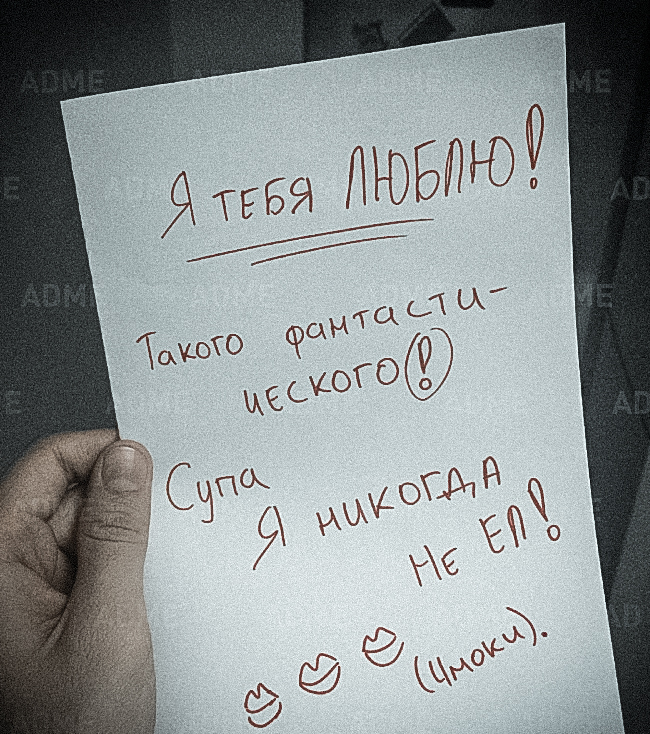 Я ТЕБЯ ЛЮБЛЮ!
Такого фантасти-
ческого(!)
Супа
Я никогда
Не ЕЛ!
(Чмоки).
ADME